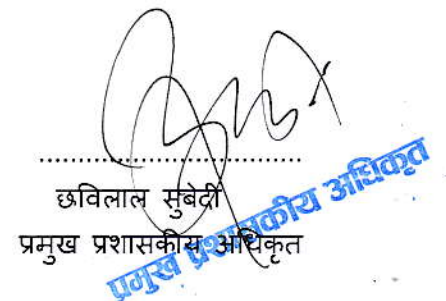 ..............................
छविलाल सुवेदी
प्रमुख प्रशासकीय अधिकृत
प्रमुख प्रशासकीय अधिकृत